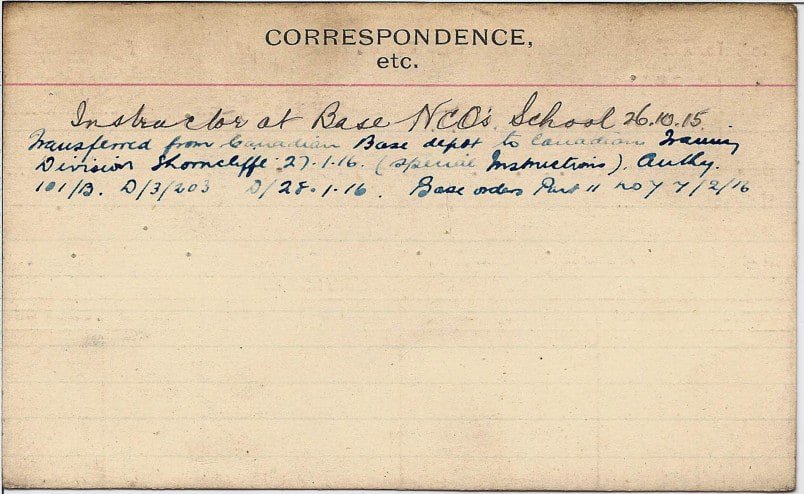 CORRESPONDENCE,
etc.
Instructor at Base NCOs School 26.10.15
Transferred from Canadian Base depot to Canadian Training
Division Shorncliffe 27.1.16. (special Instructions). Authy.
101/B. D/3/203 D/28.1.16. Base orders Part II No 7 7/2/16